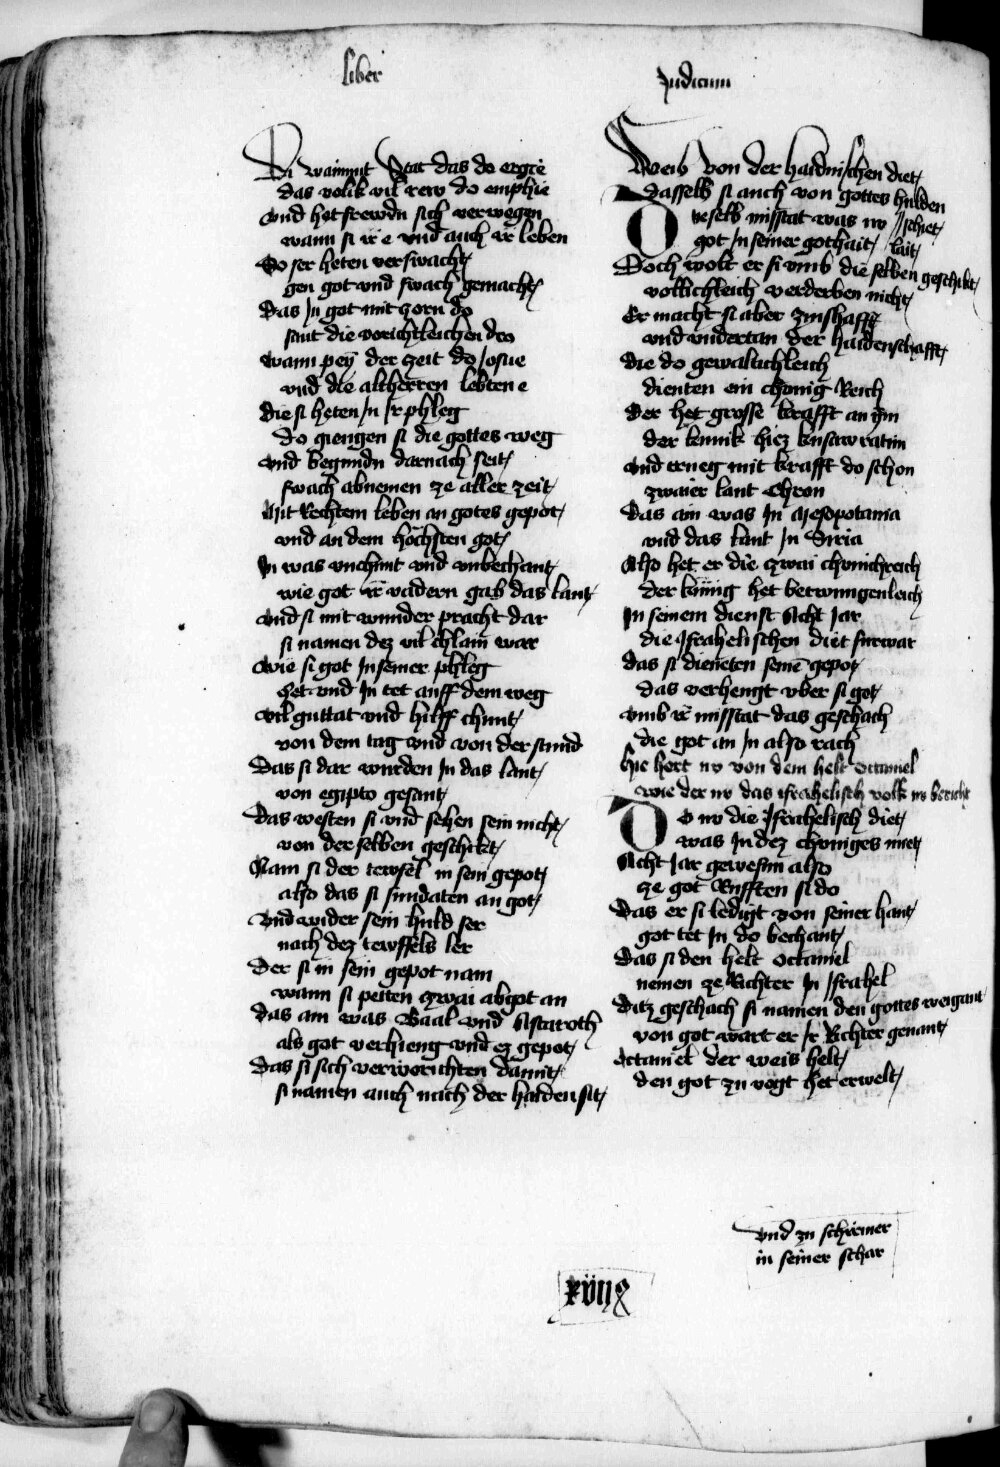 liber
Judicum
Di wainnut Stat das do ergie
das volkk vil rew do emphie
Vnd het frewdn sich verwegen
wann si ir e vnd auch ir leben
So ser heten verswacht
gen got vnd swach gemacht
Das In got mit zorn do
sint die vorichtleichen dro
Wann pey der zeit do Josue
vnd die altherren lebten e
Die si heten In Jr phleg
do giengen si die gottes weg
Vnd begundn darnach seit
swach abnemen ze aller zeit
Mit Rechtem leben an gotes gepot
vnd an dem höchsten got
In was vnchunt vnd vnbechant
wie got ir vadern gab das lant
Vnd si mit wunder pracht dar
si namen dez vil chlain war
Wie si got In seiner phleg
Het vnd In tet auff dem weg
Vil guttat vnd hilff chunt
von dem tag vnd von der stund
Das si dar wurden In das lant
von egipto gesant
Das westen si vnd sehen sein nicht
von der selben geschicht
Nam si der tewfel in sein gepot
also das si sundaten an got
Vnd wider sein huld ser
nach dez tewffels ler
Der si in sein gepot nam
wann si peiten zwai abgot an
Das ain was Baal vnd Astaroth
als got verhieng vnd ez gepot
Das si sich verworichten damit
si namen auch nach der haiden sit
Weib von der haidnischen diet
Dasselb si auch von gottes hulden schiet
Dieselb misstat was nv lait
got In seiner gothait
Doch wolt er si vmb die selben geschicht
vollichleich verderben nicht
Er macht si aber zinshafft
vnd vndertan der haidenschafft
Die do gewaltichleich
dienten ein chönig Reich
Der het grosse krafft an ym
der kunik hiez kusaw ratim
Vnd er neg mit krafft do schon
zwaier lant Chron
Das ain was In Mesopotamia
vnd das lant In Siria
Also het er die zwai chunichreich
der künig het betwungenleich
In seinem dienst Acht Jar
die Jsrahelischen diet furwar
Das si dieneten seine gepot
das verhengt vber si got
Vmb ir misstat das geschach
die got an In also rach
Hie hort nv von dem helt octaniel
wie der nv das israhelisch volk nv bericht
Do nv die Jsrahelisch diet
was In dez chöniges miet
Acht Jar gewesnn also
ze got Rufften si do
Das er si ledigt von seiner hant
got tet In do bechant
Das si den helt octaniel
nemen ze Richter In Jsrahel
Ditz geschach si namen den gottes weigant
von got wart er Jr Richter genant
Octaniel der weis helt
den got zu vogt het erwelt
vnd zu schirmer
in seiner schar